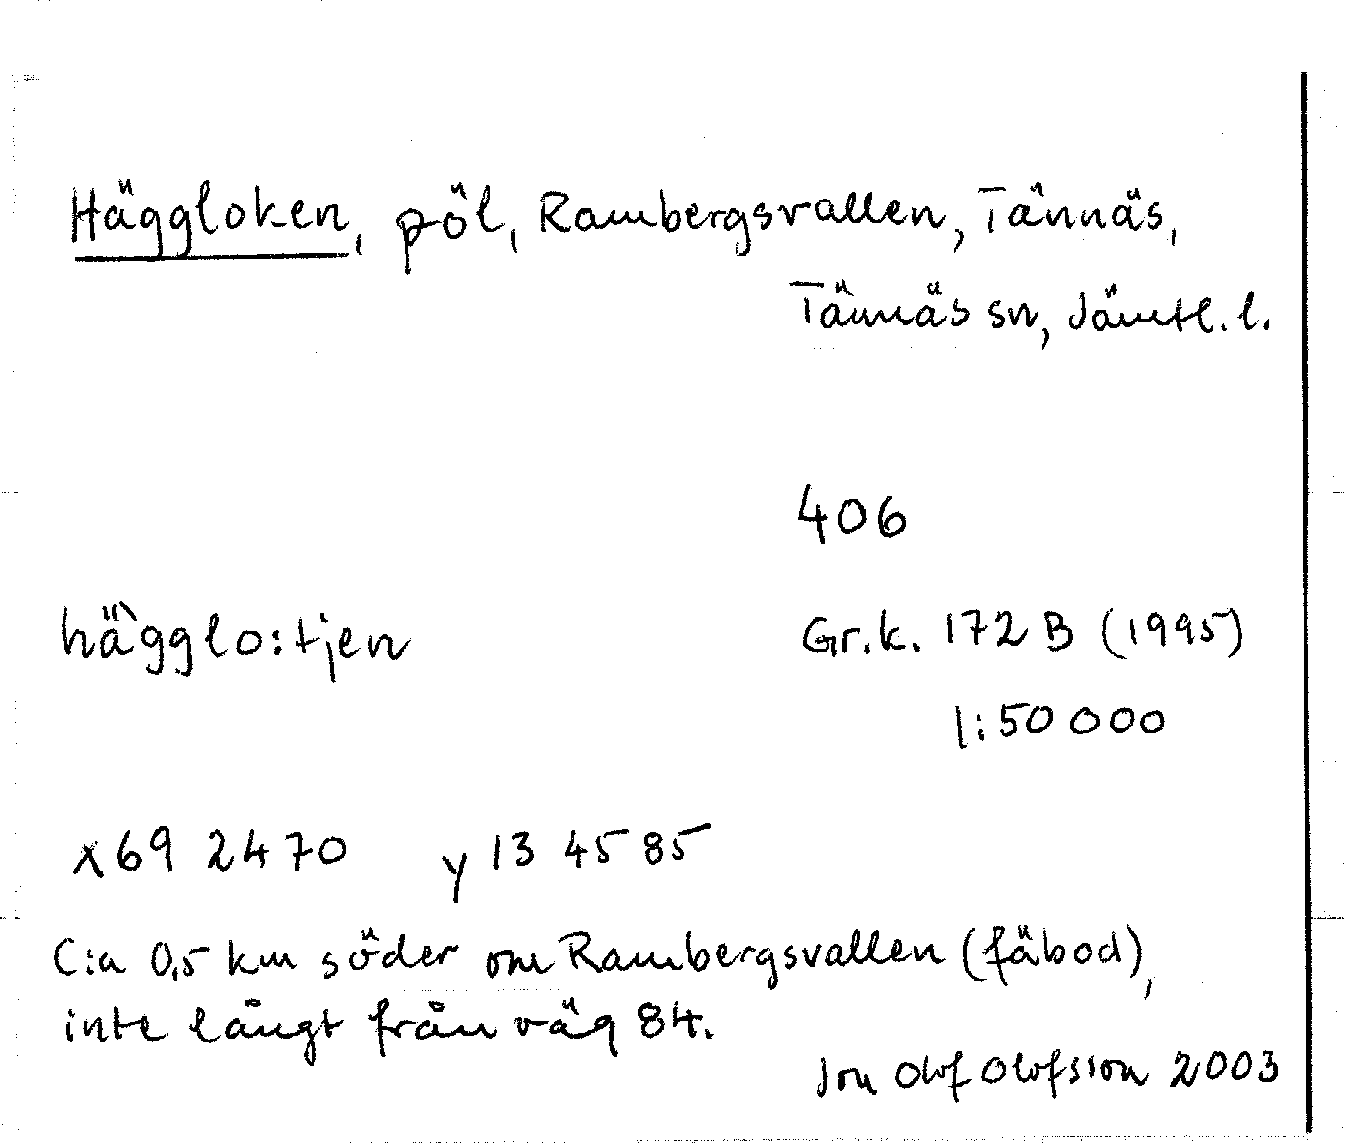 Häggloken, pöl, Rambergsvallen, Tännäs,
Tännäs sn, Jämtl. l.
406
hä̀gglo:tjen
Gr.k. 172 B (1995)
1:50 000
x 69 2470 y 13 4585
C:a 0,5 km söder om Rambergsvallen (fäbod),
inte långt från väg 84.
Jon Olof Olofsson 2003